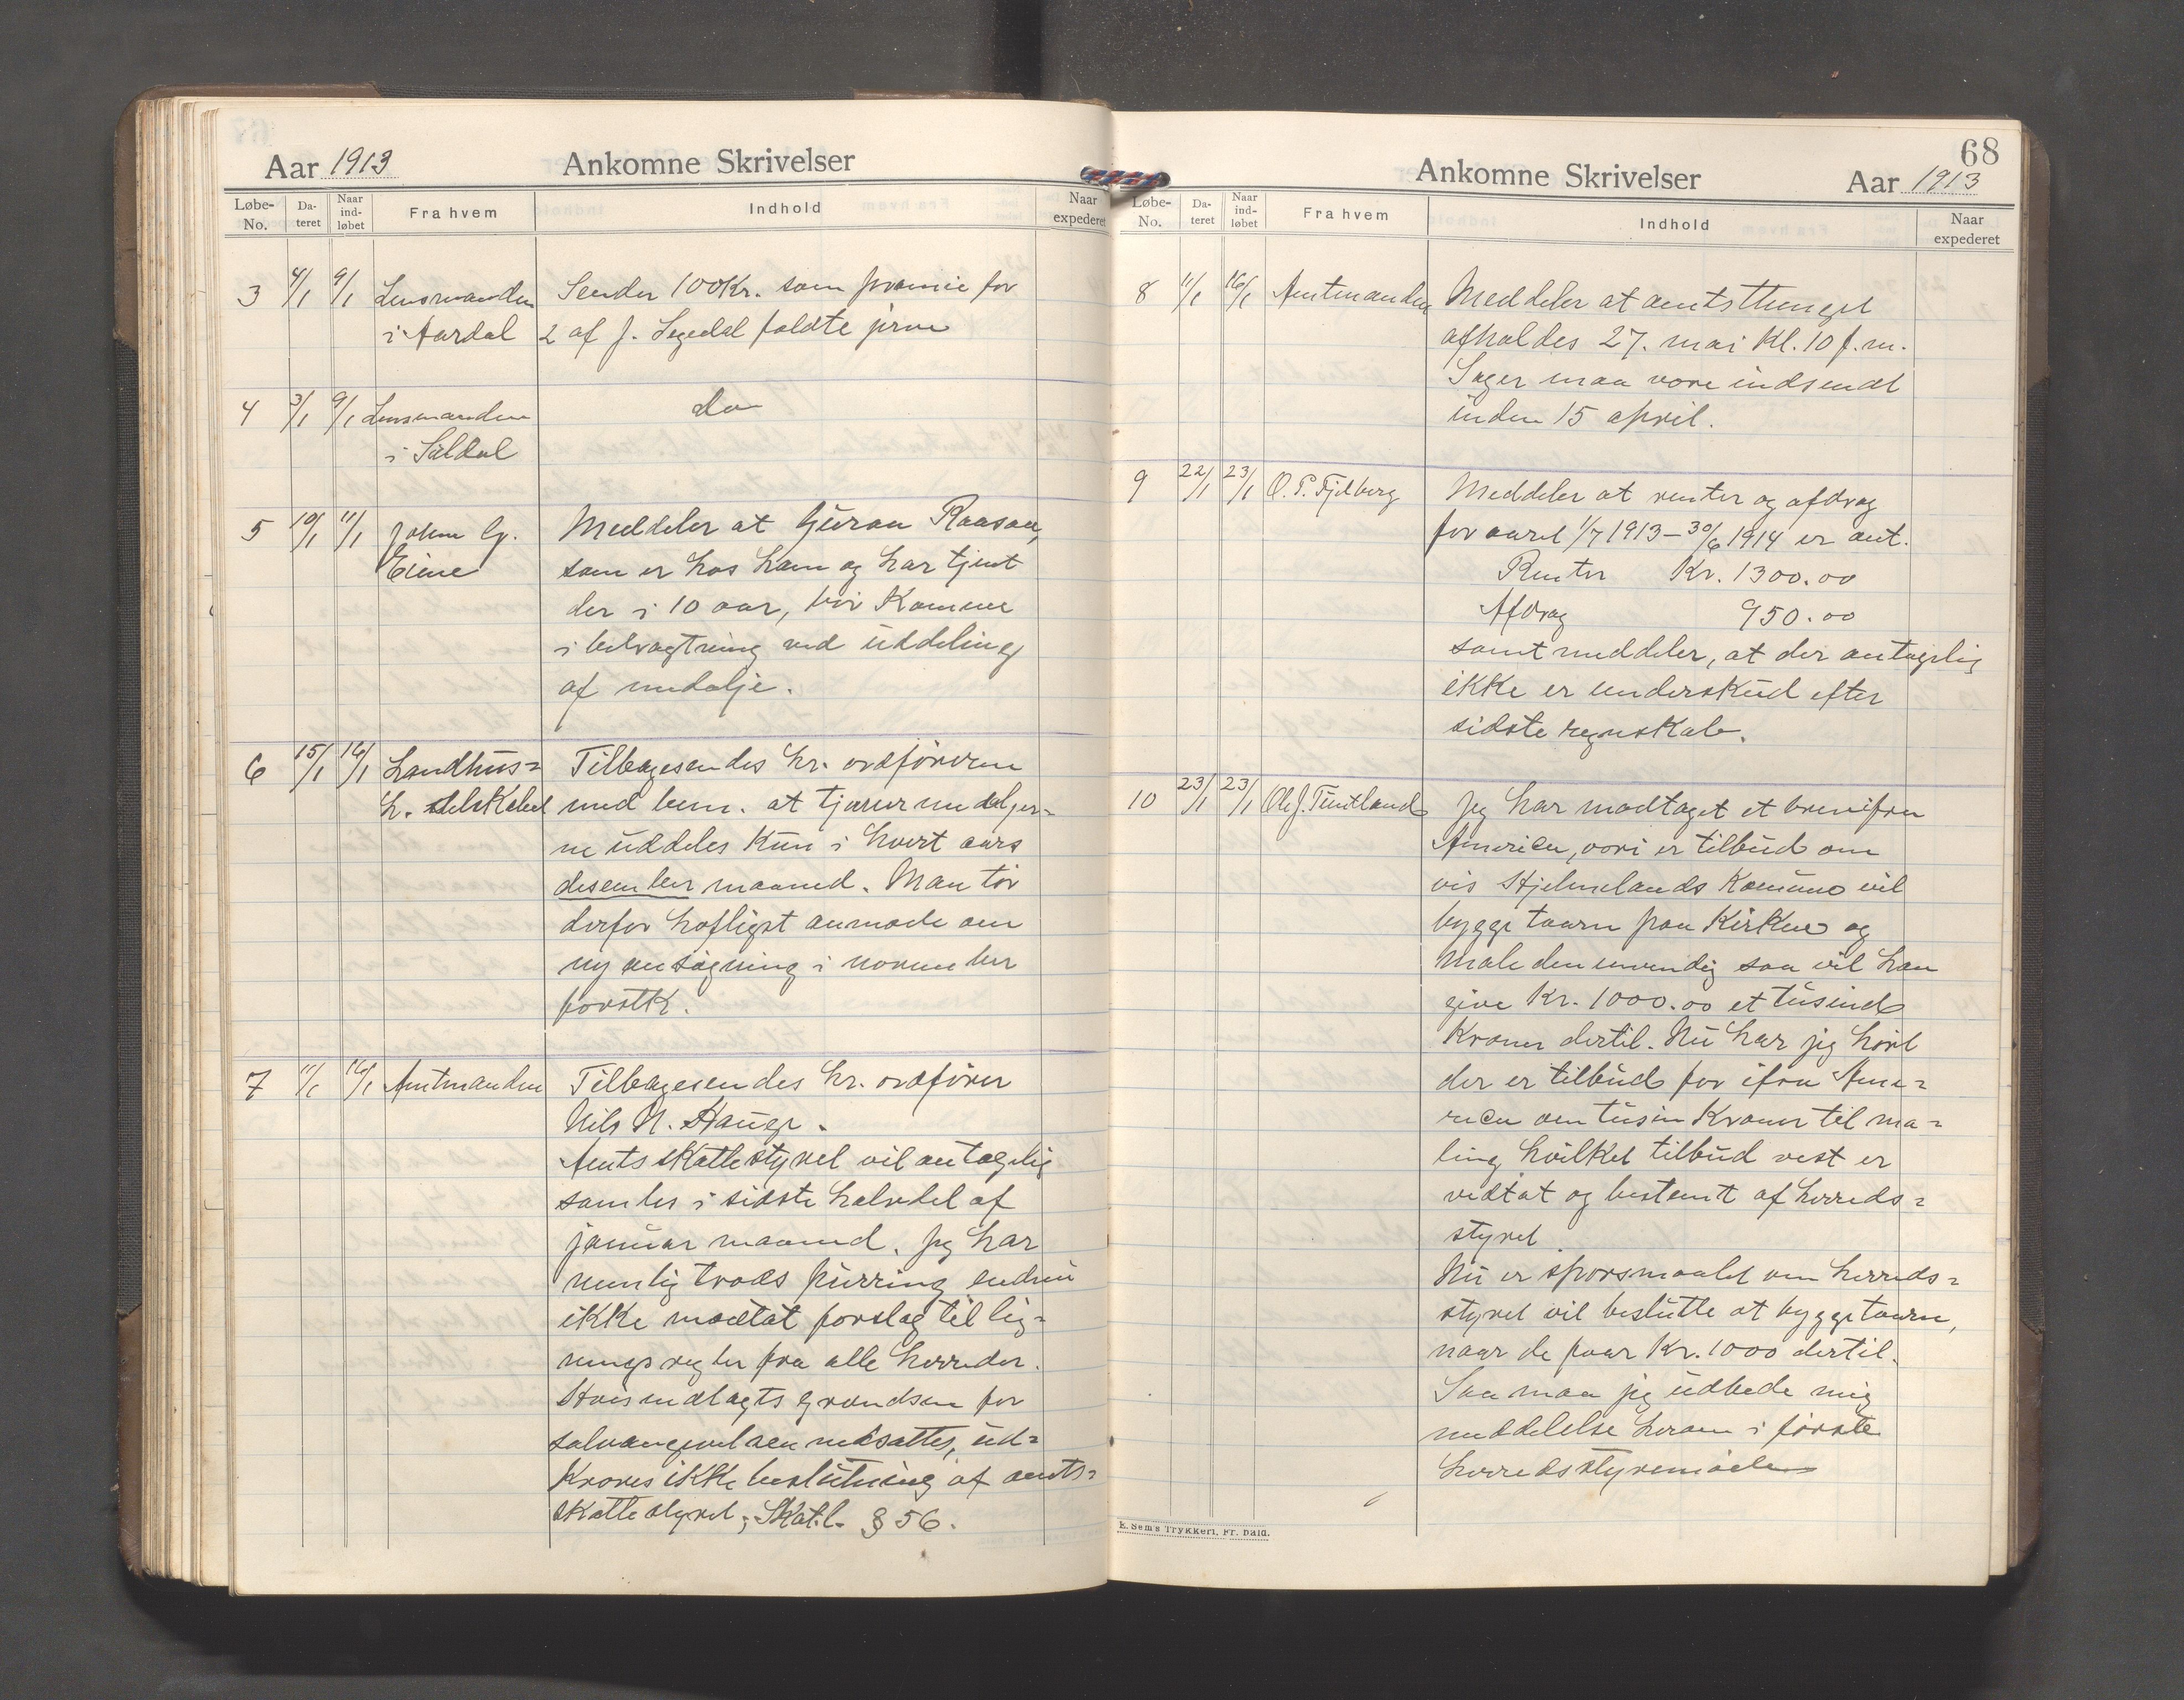 Aar 1913 Ankomne Skrivelser
Løbe-No. Dateret Naar indløbet Fra hvem Indhold Naar expederet
3 4/1 9/1 Lensmanden Sender 100 Kr. som præmie for
i Aardal 2 af J. Segedal fældte jerve
4 3/1 9/1 Lensmanden do
i Suldal
5 10/1 11/1 John G. Meddeler at Guran Raasan,
Eiene som er hos ham og har tjent
der i 10 aar, bør komme
i betragtning ved uddeling
af medalje.
6 15/1 16/1 Landhus= Tilbagesendes hr. ordføreren
h. selskabet med bem. at tjenermedaljer=
ne uddeles kun i hvert aars
desember maaned. Man tør
derfor høfligst anmode om
ny ansøgning i november
førstk.
7 11/1 16/1 Amtmanden Tilbagesendes hr. ordfører
Nils N. Hauge.
Amtsskattestyret vil antagelig
samles i sidste halvdel af
januar maaned. Jeg har
nemlig trods purring endnu
ikke mottat forslag til lig=
ningsregler fra alle herreder.
Hvis vedtagts grændsen for
selvangivelsen nedsættes, ud=
kræves ikke beslutning af amts=
skattestyret, Skat.l. § 56.
68
Ankomne Skrivelser Aar 1913
Løbe-No. Dateret Naar indløbet Fra hvem Indhold Naar expederet
8 11/1 16/1 Amtmanden Meddeler at amtsthinget
afholdes 27. mai kl. 10 f.m.
Sager maa være indsendt
inden 15 april.
9 22/1 23/1 O. P. Fjelberg Meddeler at renter og afdrag
for aaret 1/7 1913 – 30/6 1914 er ant.
Renter Kr. 1300.00
Afdrag 950.00
samt meddeler, at der antagelig
ikke er underskud efter
sidste regnskab.
10 23/1 23/1 Ole J. Tuntland Jeg har modtaget et brev ifra
Amerika, vori er tilbud om
vis Hjelmelands Komune vil
bygge taarn paa Kirken og
male den invendig saa vil han
give Kr. 1000.00 et tusind
Kroner dertil. Nu har jeg hørt
der er tilbud før ifra Ame=
rica om tusin Kroner til ma=
ling hvilket tilbud vest er
vedtat og bestemt af herreds=
styret.
Nu er spørsmaalet om herreds=
styret vil beslutte at bygge taarn,
naar de faar Kr. 1000 dertil.
Saa maa jeg udbede mig
meddelelse herom i første
herredsstyremøde
E. Sem's Trykkeri, Fr. hald.